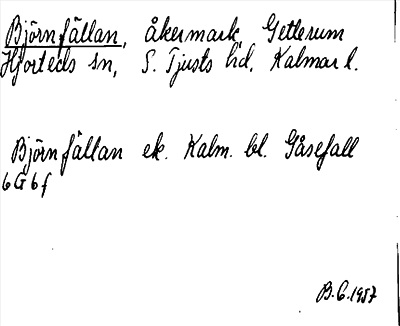 Björnfällan, åkermark, Getterum
Hjorteds sn, S. Tjusts hd, Kalmar l.
Björnfällan ek. Kalm. bl. Gåsefall
6G6f
B.G. 1957